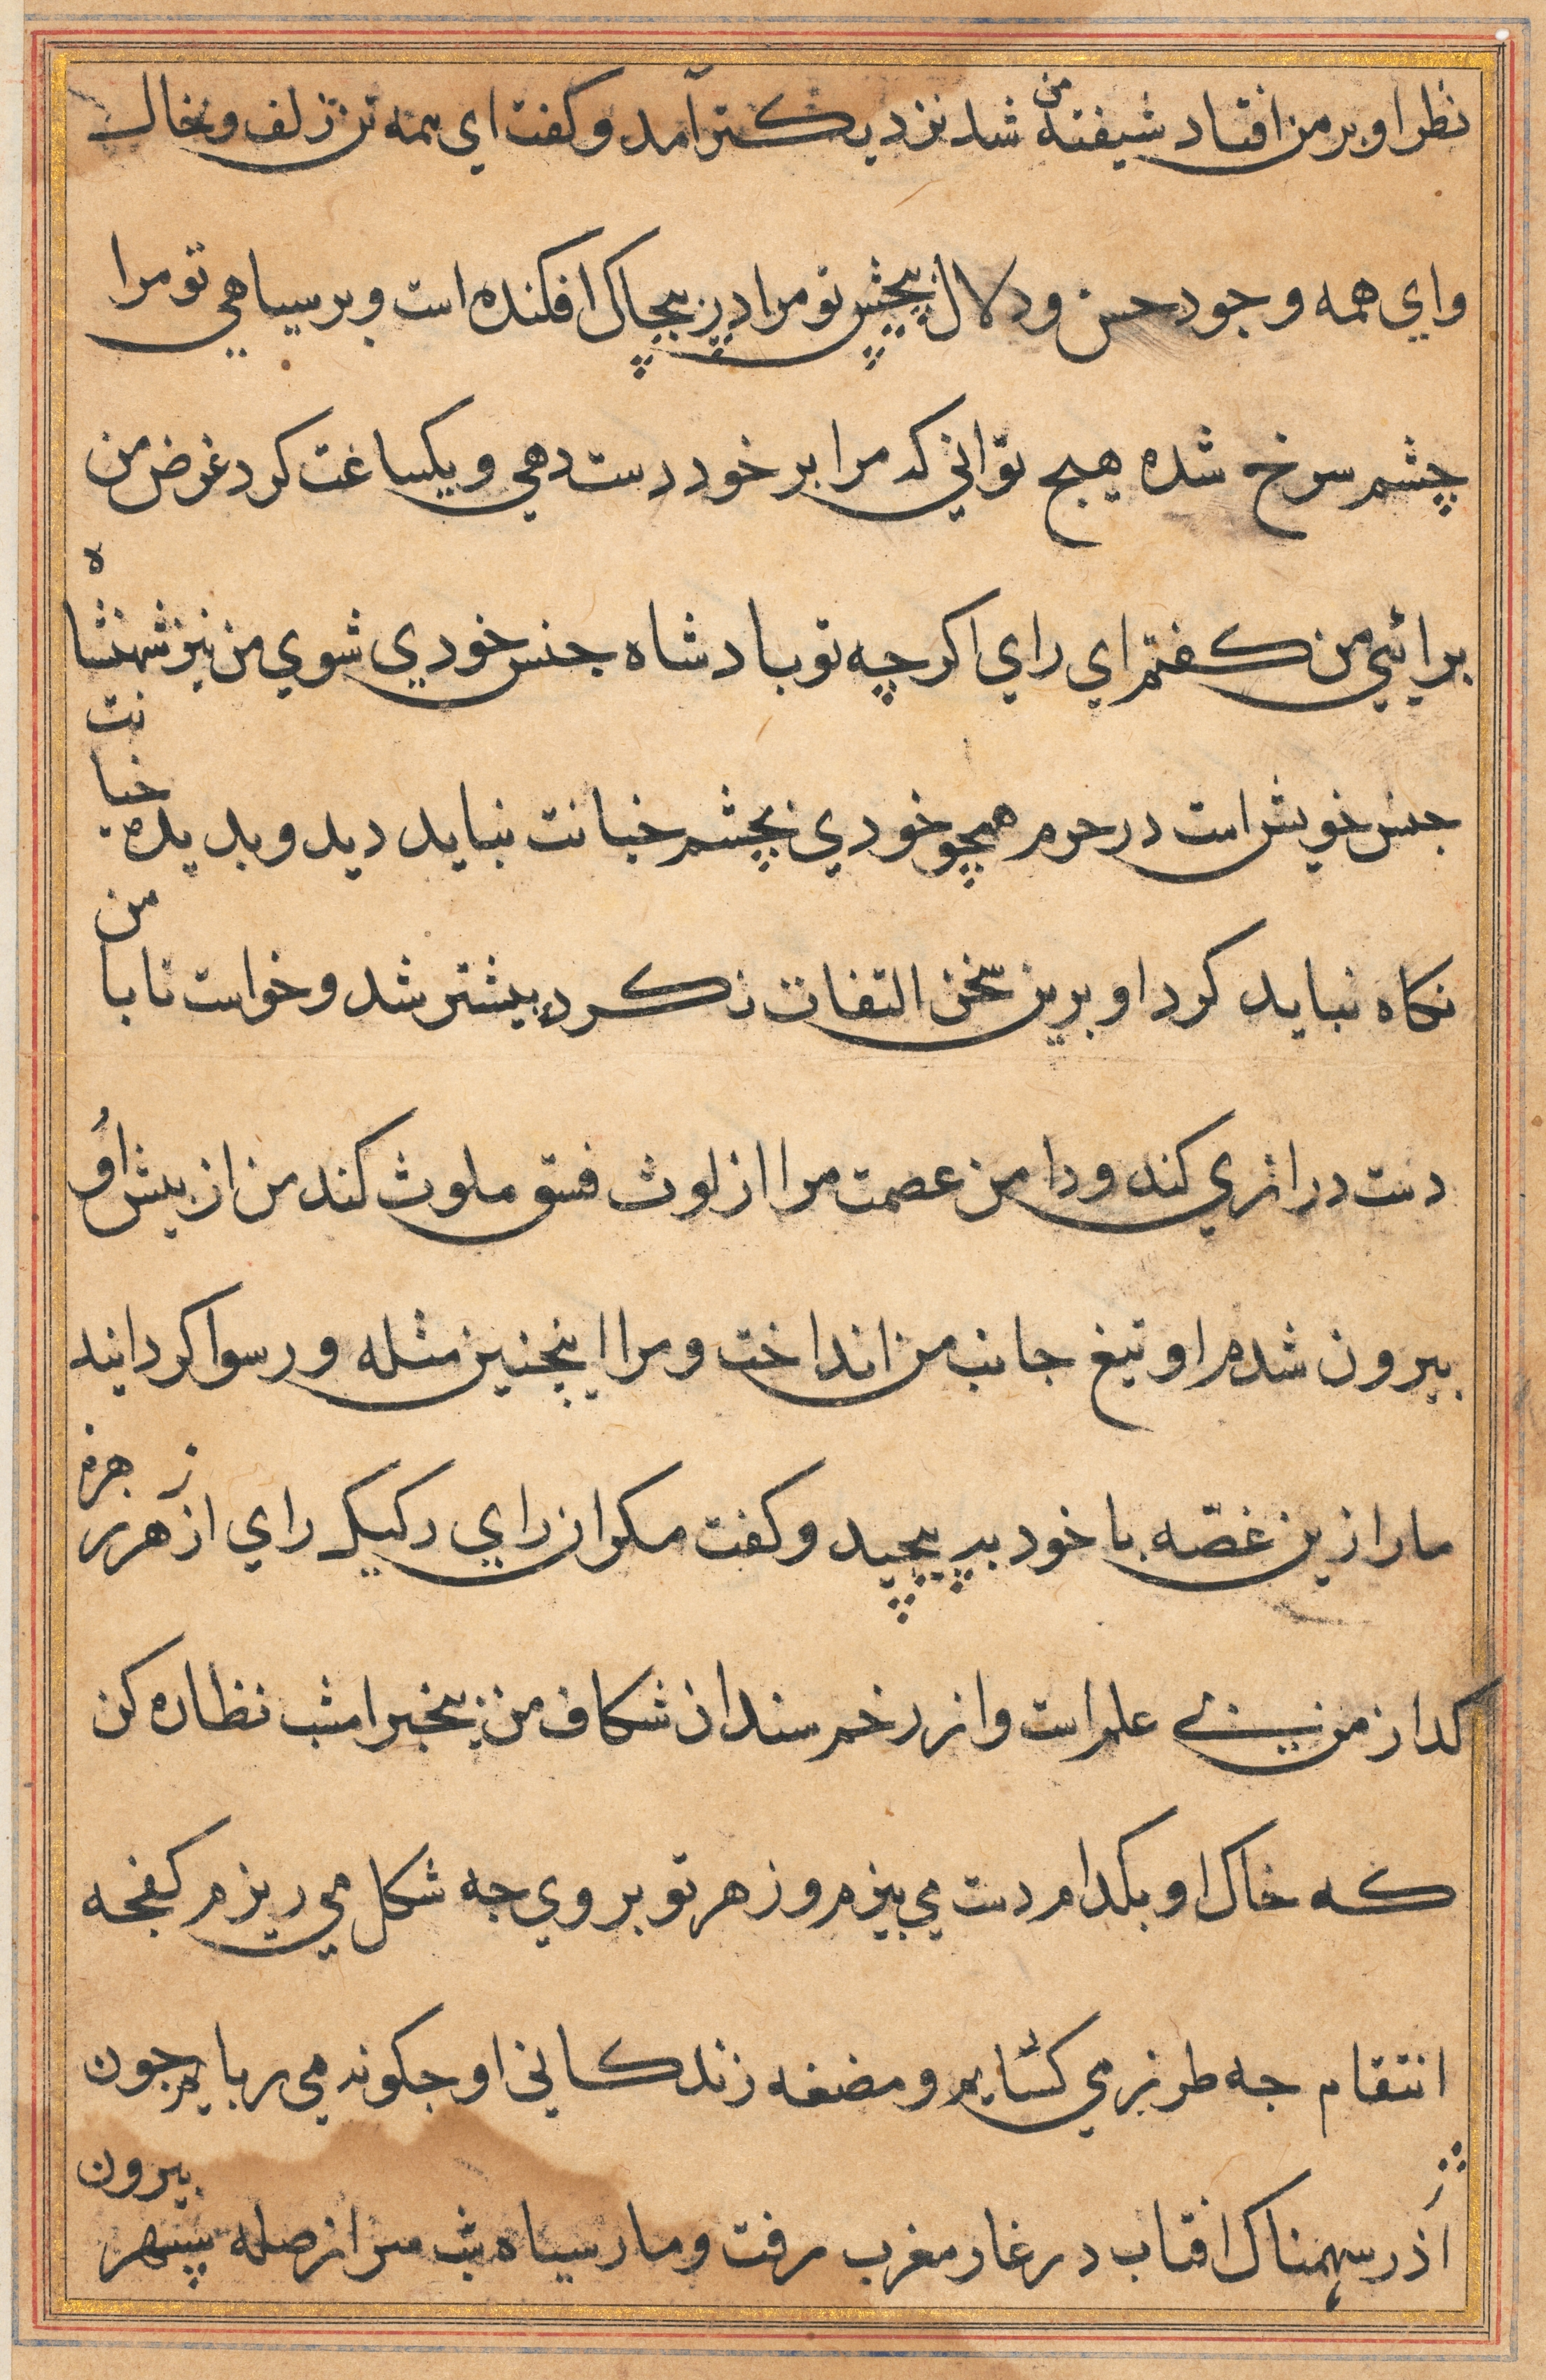 نظر او بر من افتاد شیفتهٔ من شد نزدیکتر آمد و کفت ای همه تن زلف و خال
وای همه وجود حسن و دلال پیچش تو مرا در پیچاک افکنده است و بر سیاهی تو مرا
چشم سرخ شده هیچ توانی که مرا بر خود دست دهی و یکساعت کرد غرض من
برائی من کفتم ای رای اکرچه تو بادشاه جنس خودی شوی من نیز شهنشاه
جنس خویش است در حرم همچو خودی بچشم خیانت نباید دید و بدیدهٔ خیانت
نکاه نباید کرد او برین سخن التفات نکرد بیشتر شد و خواست تا با من
دست درازی کند و دامن عصمت مرا از لوث فسق ملوث کند من از بیش او
بیرون شدم او تیغ جانب من انداخت و مرا اینچنین مثله و رسوا کردانید
مار ازین غصّه با خود بپیچید و کفت مکر ان رای رکیک رای از زهر هرزه
کداز من بی علم است و از زخم سندان شکاف من بیخبر امشب نظاره کن
که خاک او بکدام دست می بیزم و زهر تو بر وی جه شکل می ریزم کفجه
انتقام جه طرز می کشایم و مضغه زندکانی او جکونه می ربایم جون
اژدر سهمناک افتاب در غار مغرب رفت و مار سیاه شب سر از صله سپهر بیرون